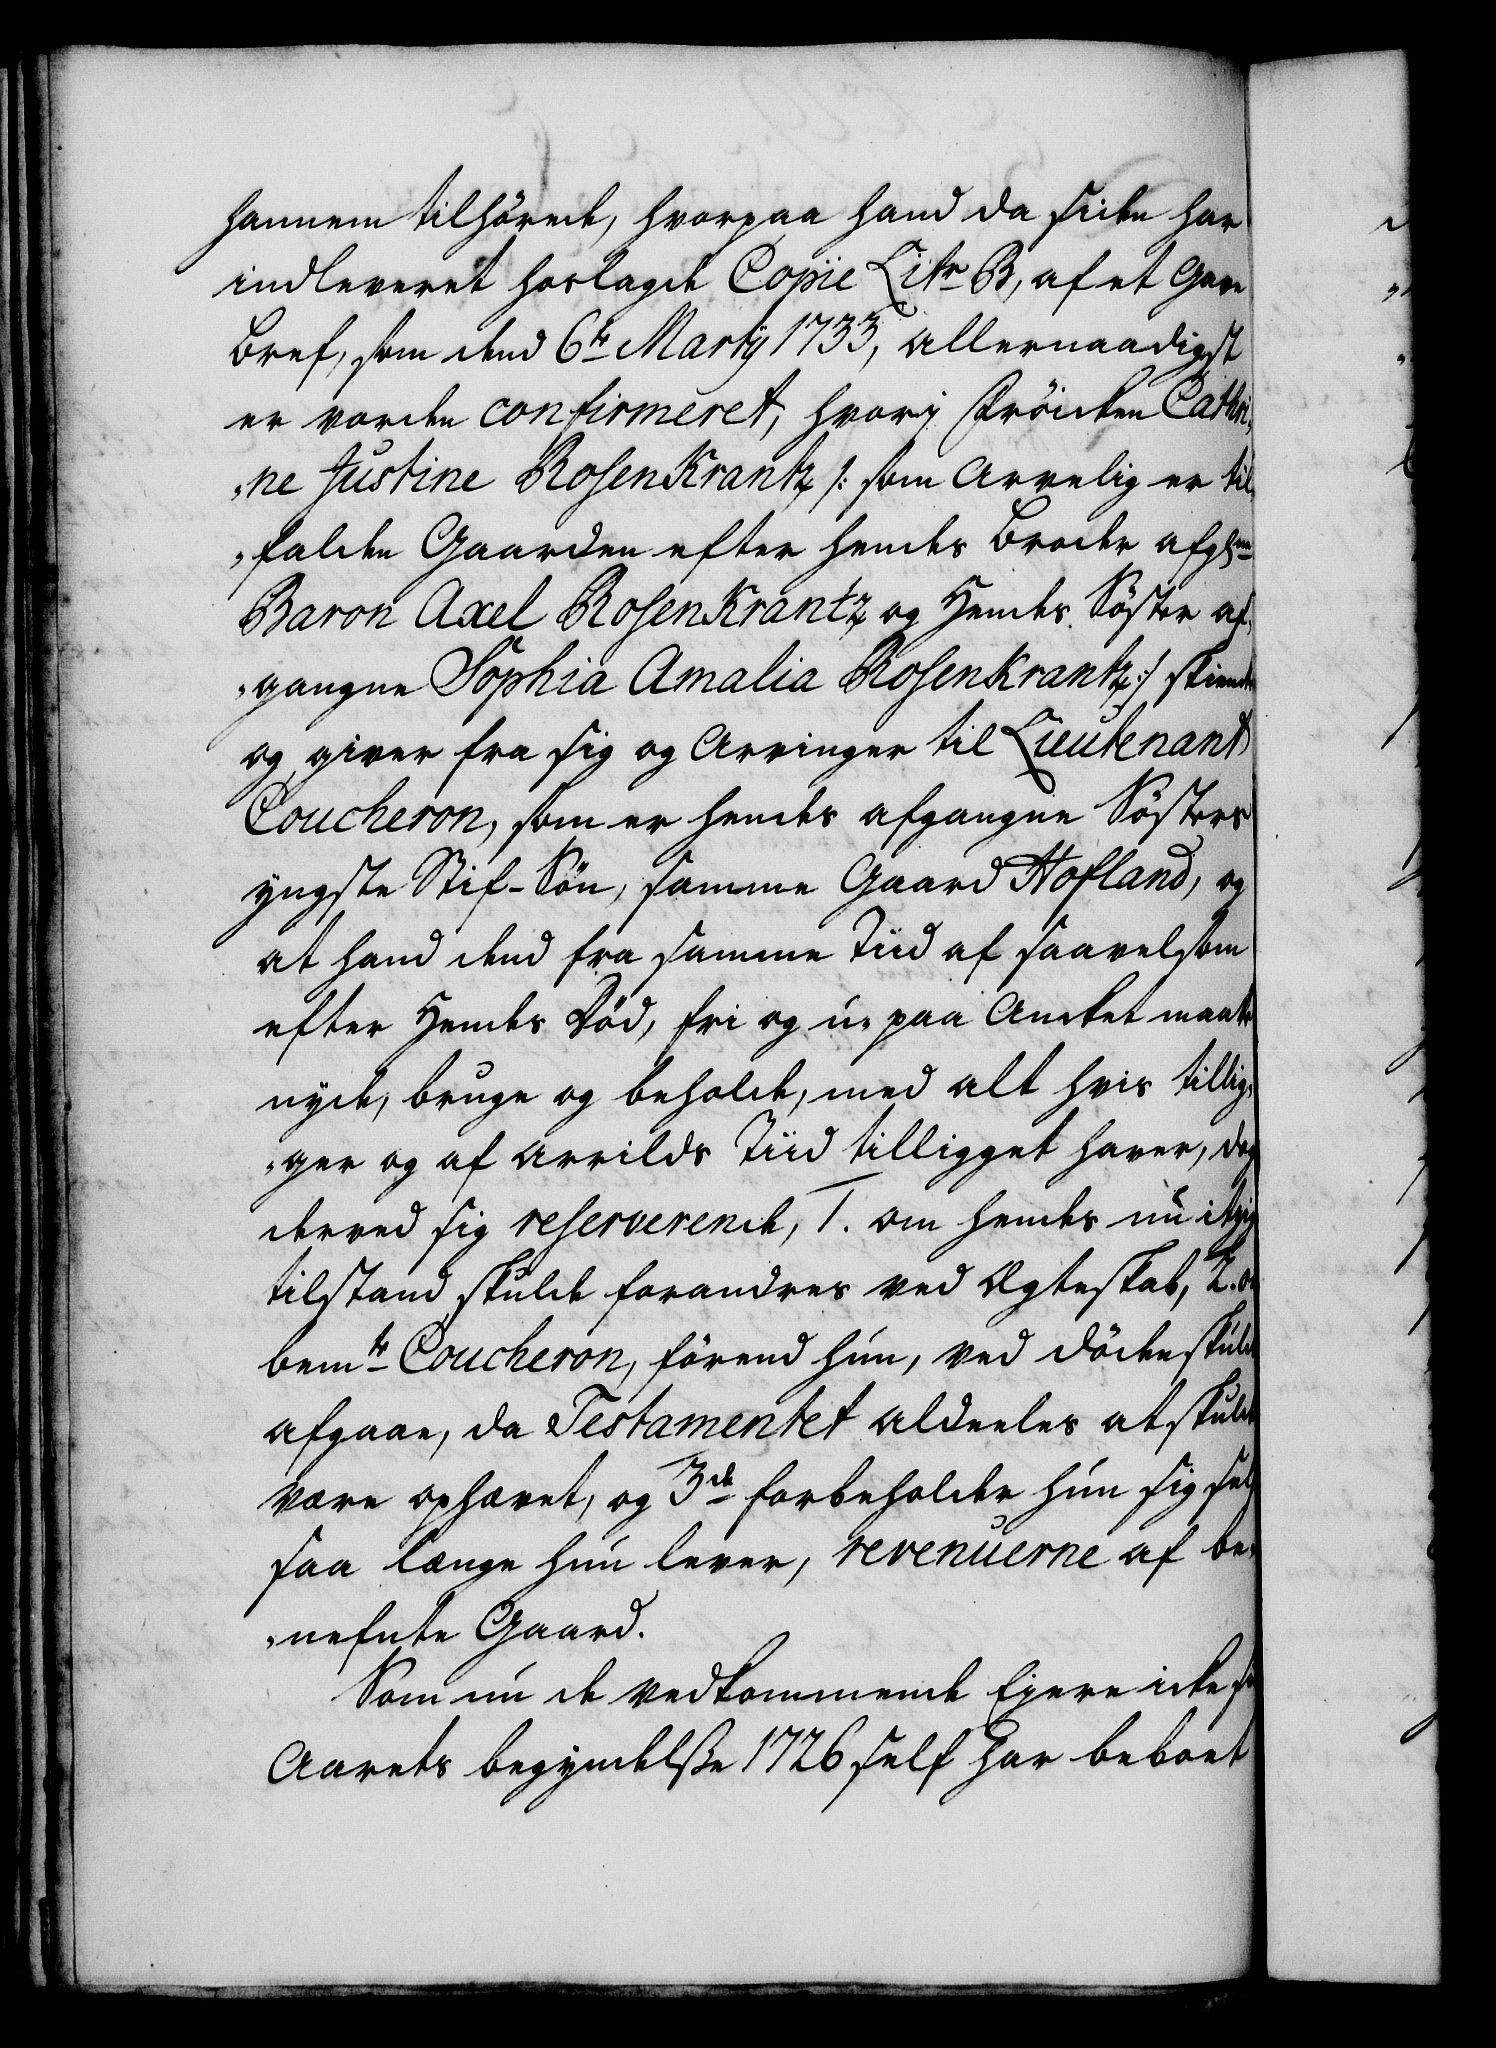 hannem tilhörede, hvorpaa hand da siden har
indleveret hoslagde Copie Litr B, af et Gave
Bref, som dend 6te Martÿ 1733, allernaadigst
er vorden confirmeret, hvorj Fröicken Cathri„
„ne Justine Rosenkrantz /: som Arvelig er til„
„falden Gaarden efter hendes Broder afgl:ne
Baron Axel Rosenkrantz og Hendes Söster af„
„gangne Sophia Amalia Rosenkrantz :/ skiencker
og giver fra sig og Arvinger til Lieutenant
Coucheron, som er hendes afgangne Sösters
yngste Stif-Sön, samme Gaard Hofland, og
at hand dend fra samme Tiid af saavelsom
efter Hendes Död, fri og u-paa Ancket maatte
nyde, bruge og beholde, med alt hvis tillig„
„ger og af Arrilds Tiid tilligget haver, dog
derved sig reserverende, 1. om hendes nu
tilstand skulde forandres ved Ægteskab, 2.
bemte Coucheron, förend hun, ved döden skulde
afgaae, da Testamentet aldeeles at skulde
være ophævet, og 3de forbeholder hun sig self
saa længe hun lever, revenuerne af be„
„nefnte Gaard.
Som nu de vedkommende Eyere icke
Aarets begyndelße 1726 self har beboet